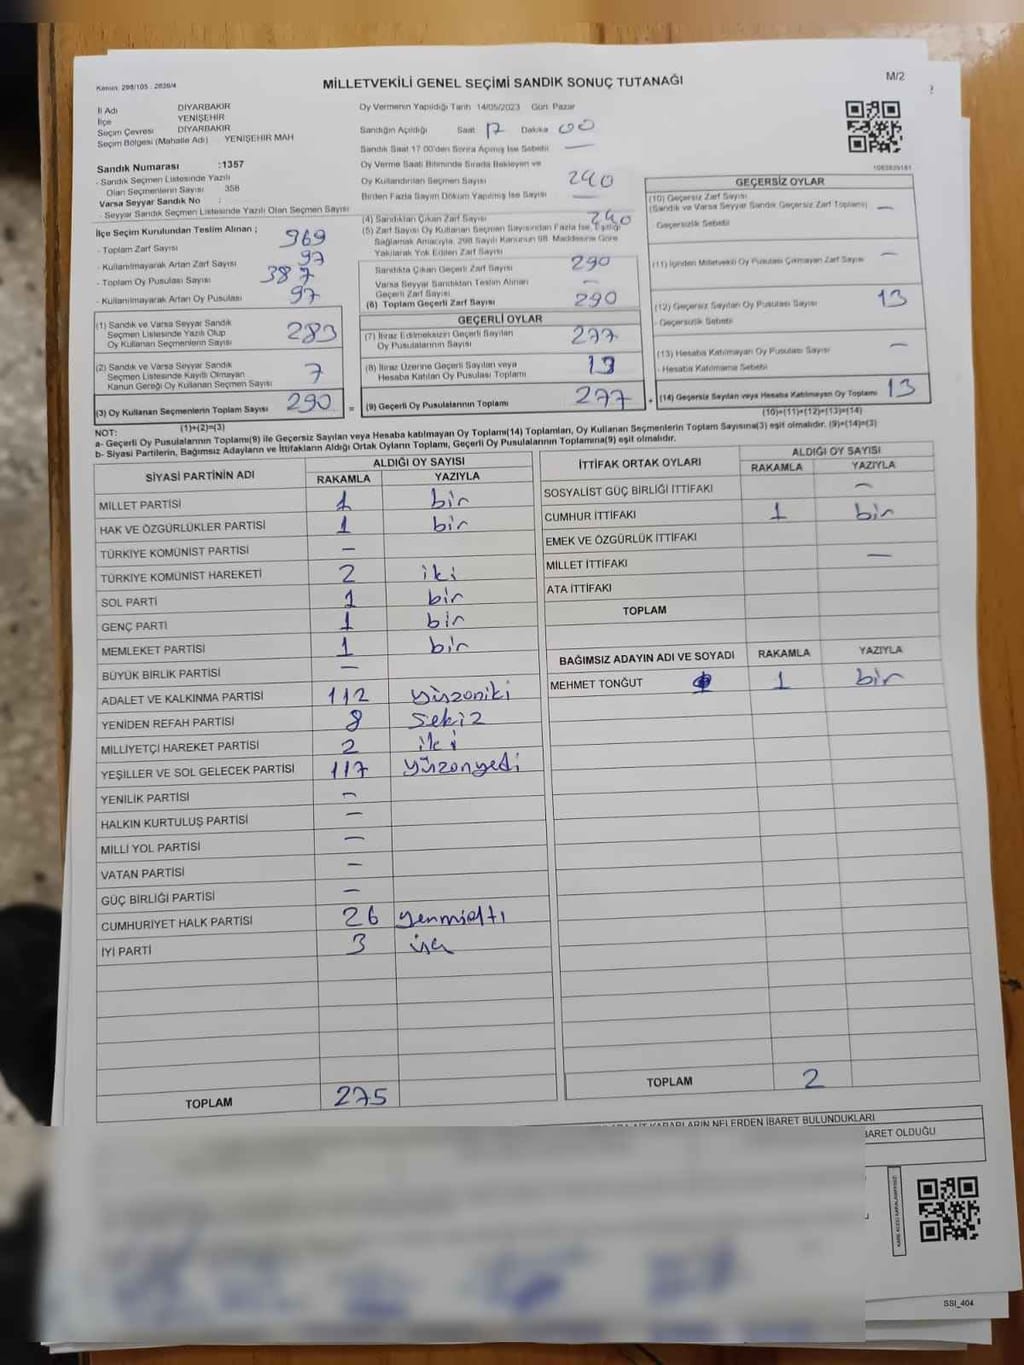 Kanun: 298/105 : 2839/4
MİLLETVEKİLİ GENEL SEÇİMİ SANDIK SONUÇ TUTANAĞI
M/2
İl Adı DİYARBAKIR
İlçe YENİŞEHİR
Seçim Çevresi DİYARBAKIR
Seçim Bölgesi (Mahalle Adı) YENİŞEHİR MAH
Sandık Numarası :1357
- Sandık Seçmen Listesinde Yazılı
Olan Seçmenlerin Sayısı 358
Varsa Seyyar Sandık No :
- Seyyar Sandık Seçmen Listesinde Yazılı Olan Seçmen Sayısı
İlçe Seçim Kurulundan Teslim Alınan ;
- Toplam Zarf Sayısı 969
- Kullanılmayarak Artan Zarf Sayısı 97
- Toplam Oy Pusulası Sayısı 387
- Kullanılmayarak Artan Oy Pusulası 97
(1) Sandık ve Varsa Seyyar Sandık
Seçmen Listesinde Yazılı Olup
Oy Kullanan Seçmenlerin Sayısı 283
(2) Sandık ve Varsa Seyyar Sandık
Seçmen Listesinde Kayıtlı Olmayan
Kanun Gereği Oy Kullanan Seçmen Sayısı 7
(3) Oy Kullanan Seçmenlerin Toplam Sayısı 290
(1)+(2)=(3)
Oy Vermenin Yapıldığı Tarih 14/05/2023 Gün: Pazar
Sandığın Açıldığı Saat 17 Dakika 00
Sandık Saat 17.00'den Sonra Açılmış İse Sebebi —
Oy Verme Saati Bitiminde Sırada Bekleyen ve
Oy Kullandırılan Seçmen Sayısı 290
Birden Fazla Sayım Döküm Yapılmış İse Sayısı —
(4) Sandıktan Çıkan Zarf Sayısı 290
(5) Zarf Sayısı Oy Kullanan Seçmen Sayısından Fazla İse, Eşitliği
Sağlamak Amacıyla, 298 Sayılı Kanunun 98. Maddesine Göre
Yakılarak Yok Edilen Zarf Sayısı
Sandıkta Çıkan Geçerli Zarf Sayısı 290
Varsa Seyyar Sandıktan Teslim Alınan
Geçerli Zarf Sayısı —
(6) Toplam Geçerli Zarf Sayısı 290
GEÇERLİ OYLAR
(7) İtiraz Edilmeksizin Geçerli Sayılan
Oy Pusulalarının Sayısı 277
(8) İtiraz Üzerine Geçerli Sayılan veya
Hesaba Katılan Oy Pusulası Toplamı
= (9) Geçerli Oy Pusulalarının Toplamı 277
1083839181
GEÇERSİZ OYLAR
(10) Geçersiz Zarf Sayısı
(Sandık ve Varsa Seyyar Sandık Geçersiz Zarf Toplamı) —
Geçersizlik Sebebi
(11) İçinden Milletvekili Oy Pusulası Çıkmayan Zarf Sayısı —
(12) Geçersiz Sayılan Oy Pusulası Sayısı 13
- Geçersizlik Sebebi
(13) Hesaba Katılmayan Oy Pusulası Sayısı —
- Hesaba Katılmama Sebebi
+ (14) Geçersiz Sayılan veya Hesaba Katılmayan Oy Toplamı 13
(10)+(11)+(12)+(13)=(14)
NOT:
a- Geçerli Oy Pusulalarının Toplamı(9) ile Geçersiz Sayılan veya Hesaba katılmayan Oy Toplamı(14) Toplamları, Oy Kullanan Seçmenlerin Toplam Sayısına(3) eşit olmalıdır. (9)+(14)=(3)
b- Siyasi Partilerin, Bağımsız Adayların ve İttifakların Aldığı Ortak Oyların Toplamı, Geçerli Oy Pusulalarının Toplamına(9) eşit olmalıdır.
SİYASİ PARTİNİN ADI ALDIĞI OY SAYISI
RAKAMLA YAZIYLA
MİLLET PARTİSİ 1 bir
HAK VE ÖZGÜRLÜKLER PARTİSİ 1 bir
TÜRKİYE KOMÜNİST PARTİSİ —
TÜRKİYE KOMÜNİST HAREKETİ 2 iki
SOL PARTİ 1 bir
GENÇ PARTİ 1 bir
MEMLEKET PARTİSİ 1 bir
BÜYÜK BİRLİK PARTİSİ —
ADALET VE KALKINMA PARTİSİ 112 yüzoniki
YENİDEN REFAH PARTİSİ 8 sekiz
MİLLİYETÇİ HAREKET PARTİSİ 2 iki
YEŞİLLER VE SOL GELECEK PARTİSİ 117 yüzonyedi
YENİLİK PARTİSİ —
HALKIN KURTULUŞ PARTİSİ —
MİLLİ YOL PARTİSİ —
VATAN PARTİSİ —
GÜÇ BİRLİĞİ PARTİSİ —
CUMHURİYET HALK PARTİSİ 26 yenmialtı
İYİ PARTİ 3 üç
TOPLAM 275
İTTİFAK ORTAK OYLARI ALDIĞI OY SAYISI
RAKAMLA YAZIYLA
SOSYALİST GÜÇ BİRLİĞİ İTTİFAKI —
CUMHUR İTTİFAKI 1 bir
EMEK VE ÖZGÜRLÜK İTTİFAKI
MİLLET İTTİFAKI —
ATA İTTİFAKI
TOPLAM
BAĞIMSIZ ADAYIN ADI VE SOYADI RAKAMLA YAZIYLA
MEHMET TONĞUT 1 bir
TOPLAM 2
KARARLARIN NELERDEN İBARET BULUNDUKLARI
İBARET OLDUĞU
SSI_404